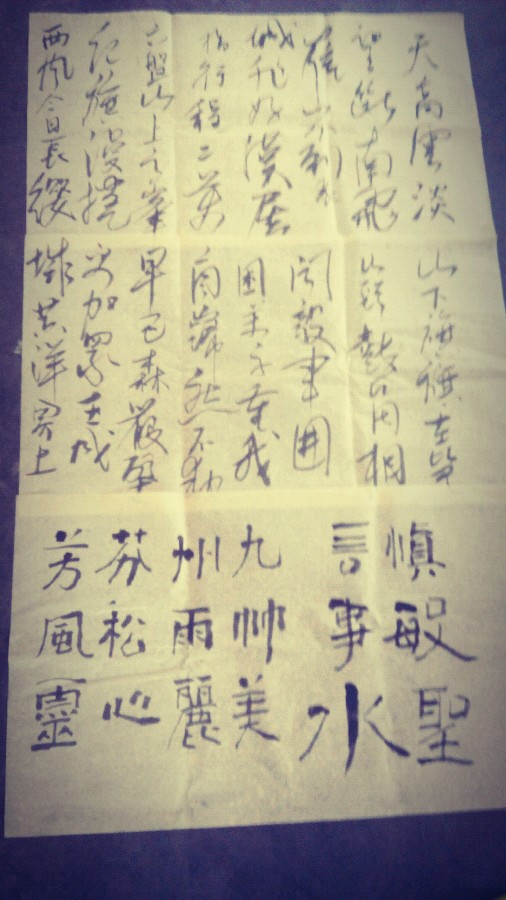 天高雲淡
望断南飛
雁不到长
城非好漢屈
指行程二萬
六盤山上高峯
红旗漫捲
西風今日長缨
山下旌旗在望
山頭鼓角相
闻敵軍围
困萬千重我
自巋然不動
早已森嚴壁
更加眾志成
城黄洋界上
慎敏聖
言事水
九帅美
州雨麗
芬松心
芳風靈